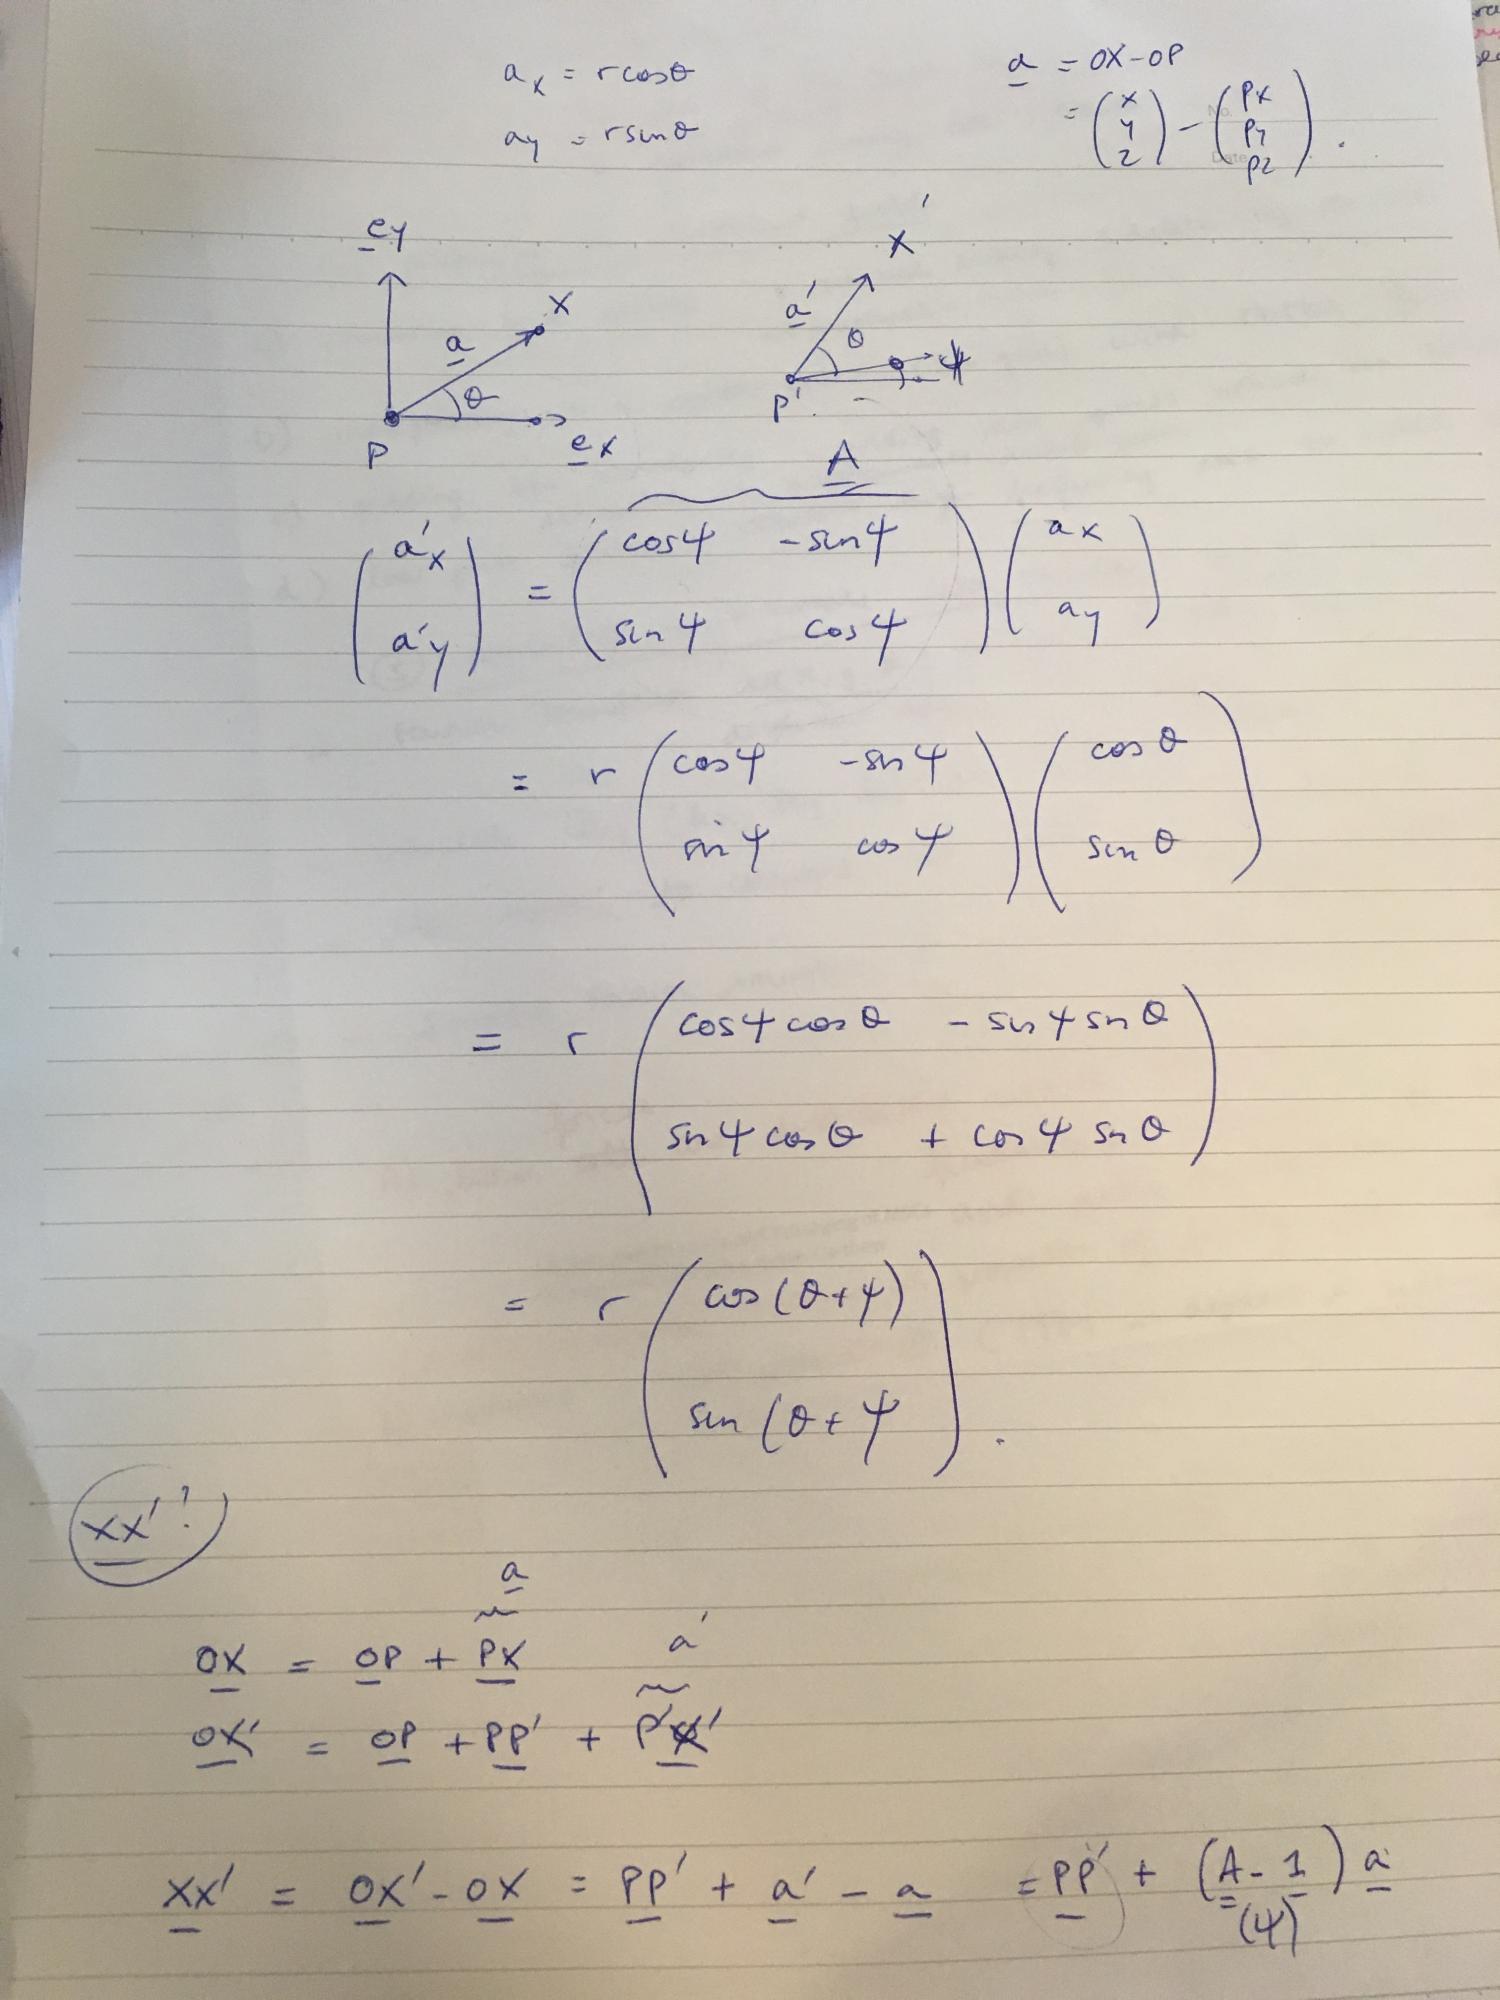 a_x = r cosθ
a_y = r sinθ
a = OX - OP
= (x y z) - (px py pz).
ey
X
a
θ
P
ex
X'
a'
θ
ψ
P'
A
(a'x a'y) = (cosψ -sinψ sinψ cosψ) (ax ay)
= r (cosψ -sinψ sinψ cosψ) (cosθ sinθ)
= r (cosψ cosθ - sinψ sinθ
sinψ cosθ + cosψ sinθ)
= r (cos(θ+ψ)
sin(θ+ψ).
XX'?
a
OX = OP + PX
a'
OX' = OP + PP' + P'X'
XX' = OX' - OX = PP' + a' - a = PP' + (A - 1) a
(ψ)